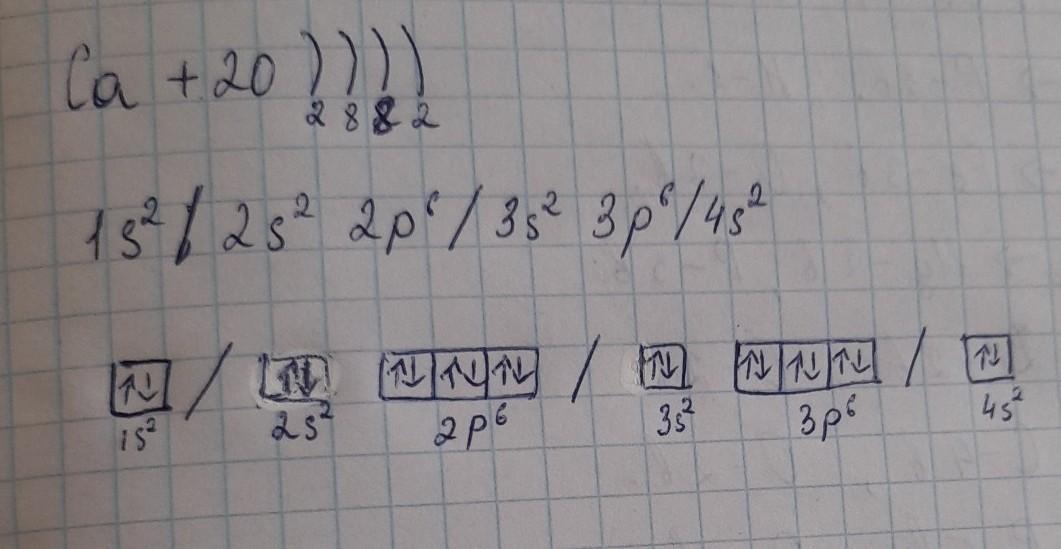 Ca +20 ) ) ) )
2 8 8 2
1s² / 2s² 2p⁶ / 3s² 3p⁶ / 4s²
↑↓ / ↑↓ ↑↓ ↑↓ ↑↓ / ↑↓ ↑↓ ↑↓ ↑↓ / ↑↓
1s² 2s² 2p⁶ 3s² 3p⁶ 4s²